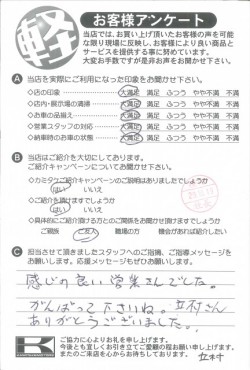 軽
お客様アンケート
当店では、お買い上げ頂いたお客様の声を可能
な限り現場に反映し、お客様により良い商品と
サービスを提供する事に努めています。
大変お手数ですが是非お声をお聞かせ下さい。
A 当店を実際にご利用になった印象をお聞かせ下さい。
◇店の印象 大満足 満足 ふつう やや不満 不満
◇店内・展示場の清掃 大満足 満足 ふつう やや不満 不満
◇お車の品揃え 大満足 満足 ふつう やや不満 不満
◇営業スタッフの対応 大満足 満足 ふつう やや不満 不満
◇納車時のお車の状態 大満足 満足 ふつう やや不満 不満
B 当店はご紹介を大切にしております。
ご紹介キャンペーンについてお聞かせ下さい。
◇カミタウご紹介キャンペーンのご説明はありましたでしょうか
はい いいえ
◇ご紹介を頂けますでしょうか
はい いいえ
◇具体的にご紹介頂ける方とのご関係をお聞かせ頂けますでしょうか
ご親族 ご友人 職場の方 機会があれば紹介したい
C 担当させて頂きましたスタッフへのご指摘、ご指導メッセージを
お願いします。応援メッセージもぜひお願いします。
感じの良い営業さんでした。
がんばって下さいね。立村さん
ありがとうございました。
K
ご協力に心よりお礼を申し上げます。
今後とも宜しくお引き立てご愛顧の程お願い申し上げます。
またのご来店を心からお待ちしております。
立村